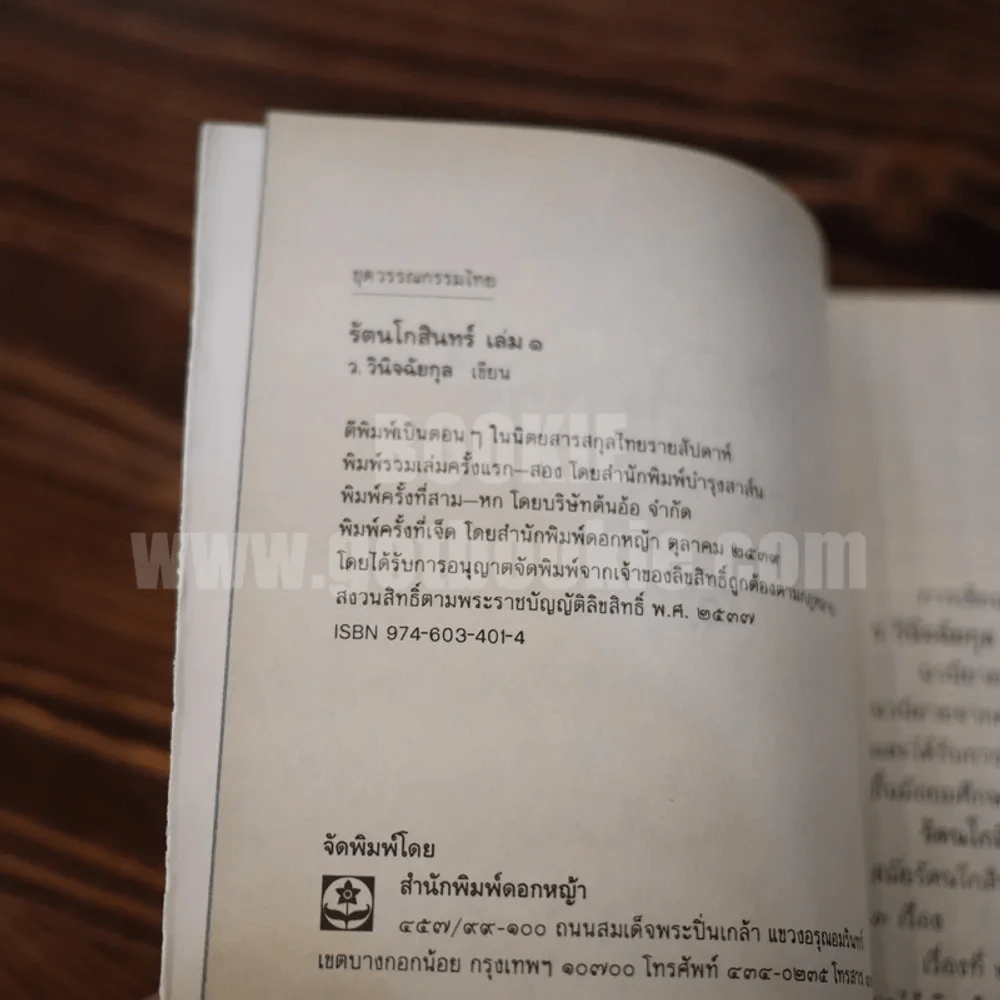 ชุดวรรณกรรมไทย
รัตนโกสินทร์ เล่ม ๑
ว. วินิจฉัยกุล เขียน
ตีพิมพ์เป็นตอน ๆ ในนิตยสารสกุลไทยรายสัปดาห์
พิมพ์รวมเล่มครั้งแรก—สอง โดยสำนักพิมพ์บำรุงสาส์น
พิมพ์ครั้งที่สาม—หก โดยบริษัทต้นอ้อ จำกัด
พิมพ์ครั้งที่เจ็ด โดยสำนักพิมพ์ดอกหญ้า ตุลาคม ๒๕๓๙
โดยได้รับการอนุญาตจัดพิมพ์จากเจ้าของลิขสิทธิ์ถูกต้องตามกฎหมาย
สงวนสิทธิ์ตามพระราชบัญญัติลิขสิทธิ์ พ.ศ. ๒๕๓๗
ISBN 974-603-401-4
จัดพิมพ์โดย
สำนักพิมพ์ดอกหญ้า
๔๕๗/๙๙-๑๐๐ ถนนสมเด็จพระปิ่นเกล้า แขวงอรุณอมรินทร์
เขตบางกอกน้อย กรุงเทพฯ ๑๐๗๐๐ โทรศัพท์ ๔๓๔-๐๒๓๕ โทรสาร
BOOKIE
ว. วินิจฉัยกุล
และได้รับการ
๑ เรื่อง
เรื่องที่